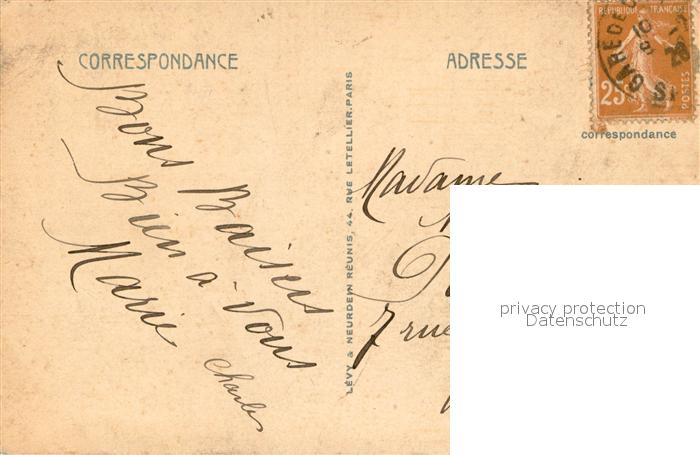 CORRESPONDANCE
Bons Baisers
Bien à vous
Marie
Charles
LÉVY & NEURDEIN RÉUNIS, 44, RUE LETELLIER, PARIS
ADRESSE
RÉPUBLIQUE FRANÇAISE
25
POSTES
GARE DE
correspondance
Madame
7 rue
privacy protection
Datenschutz